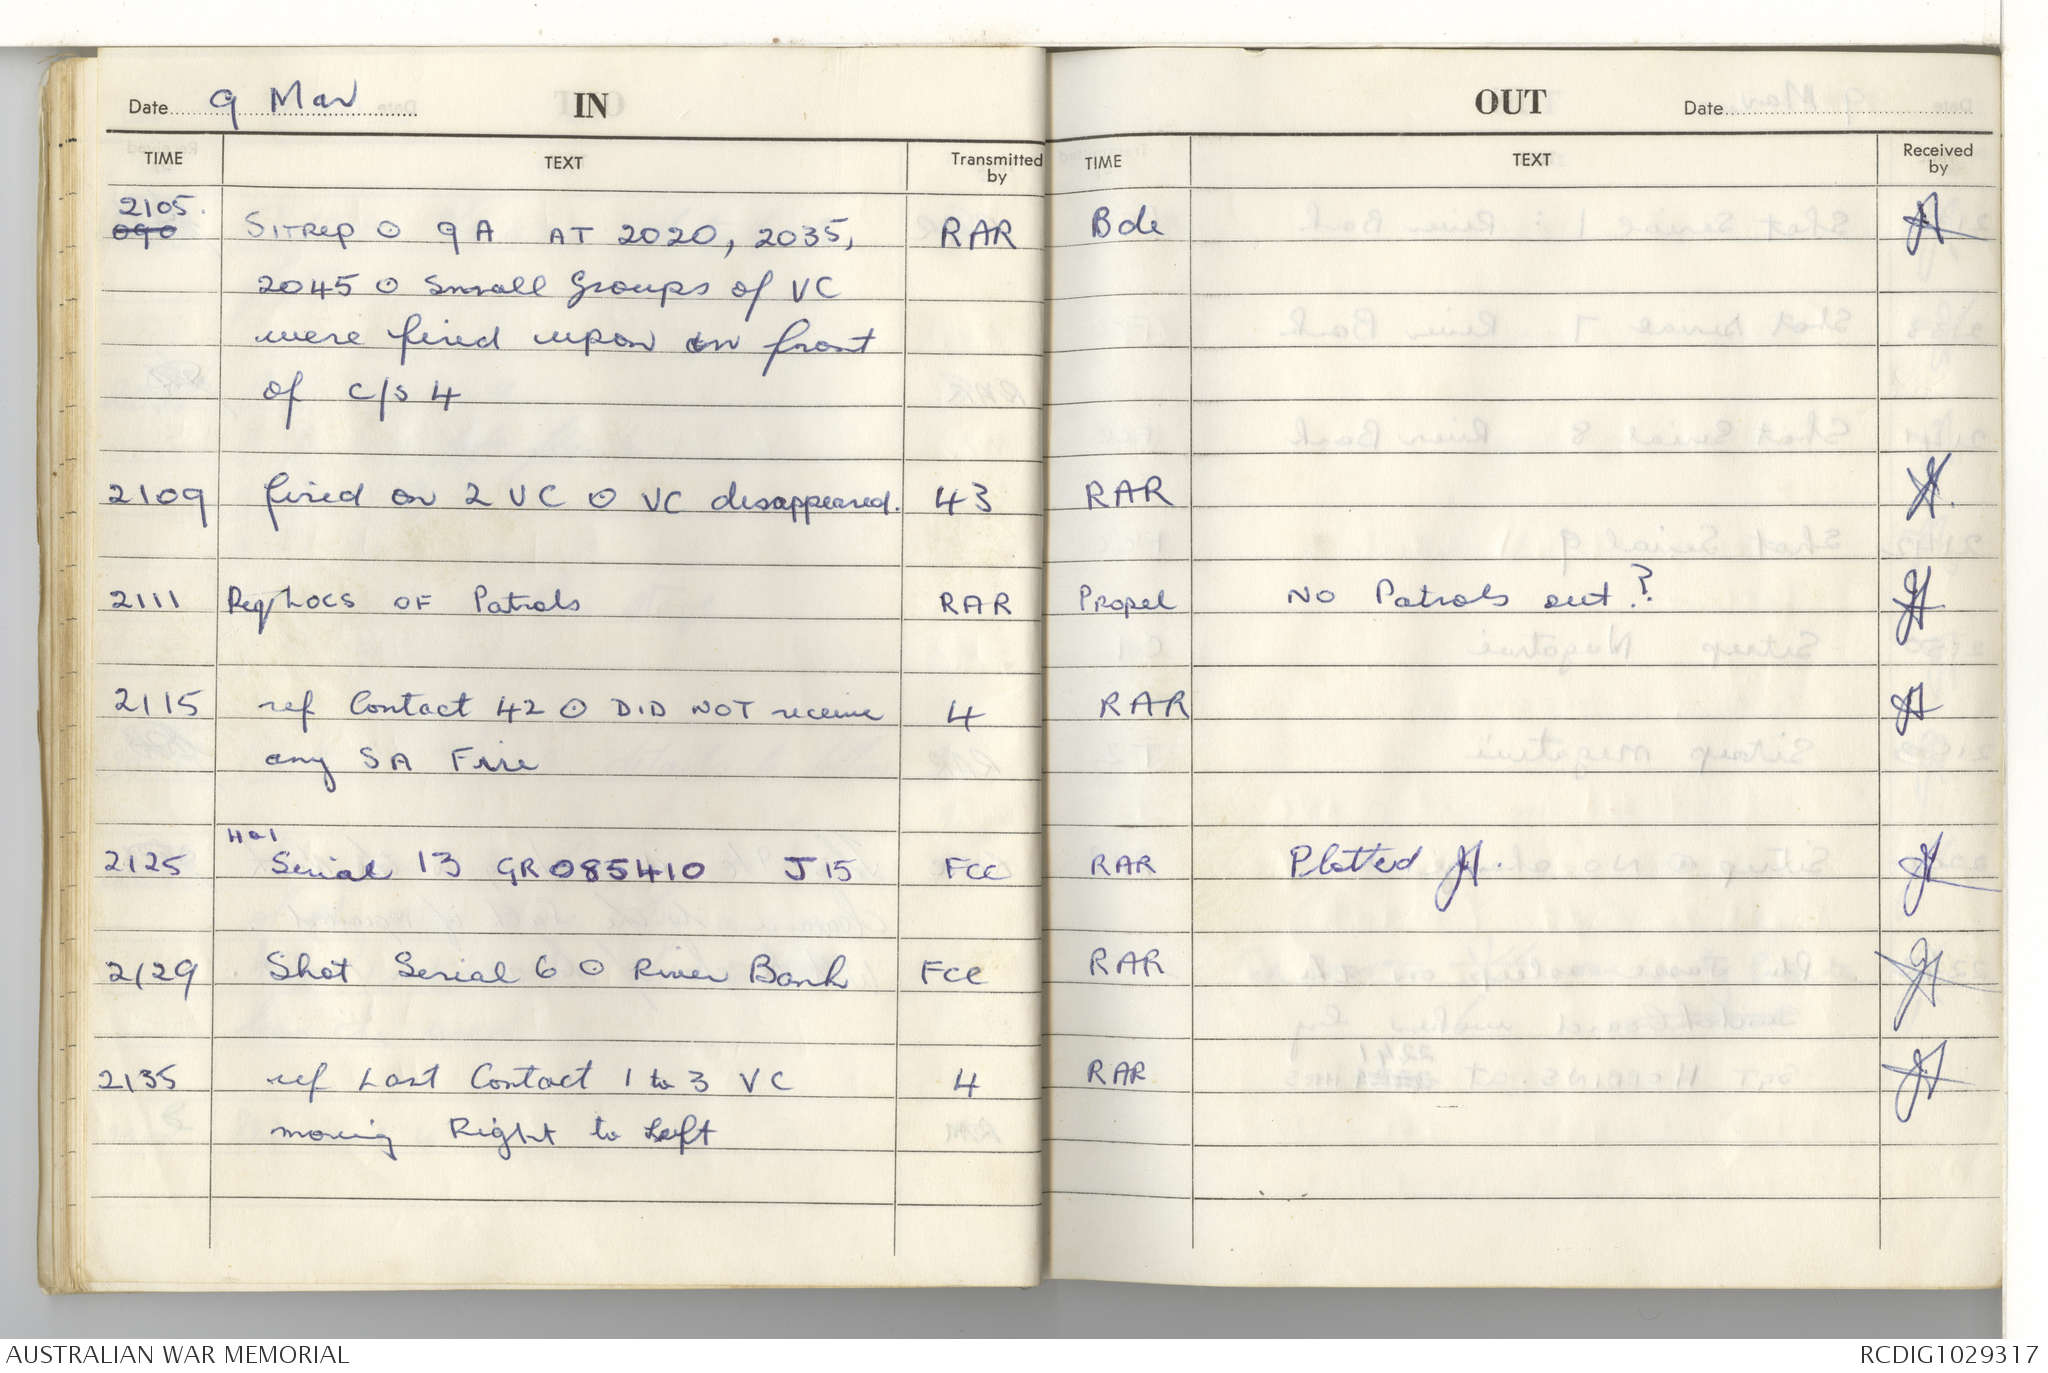 Date 9 Mar IN
TIME TEXT Transmitted by
2105.
090 SITREP ⊙ 9A AT 2020, 2035, RAR
2045 ⊙ Small Groups of VC
were fired upon on front
of C/S 4
2109 fired on 2 VC ⊙ VC disappeared. 43
2111 Req Locs OF Patrols RAR
2115 ref Contact 42 ⊙ DID NOT receive 4
any SA Fire
H&I
2125 Serial 13 GR 085410 J15 FCE
2129 Shot Serial 6 ⊙ River Bank FCE
2135 ref Last Contact 1 to 3 VC 4
moving Right to Left
OUT Date
TIME TEXT Received by
Bde
RAR
Propel NO Patrols out?
RAR
RAR Plotted
RAR
RAR
AUSTRALIAN WAR MEMORIAL RCDIG1029317